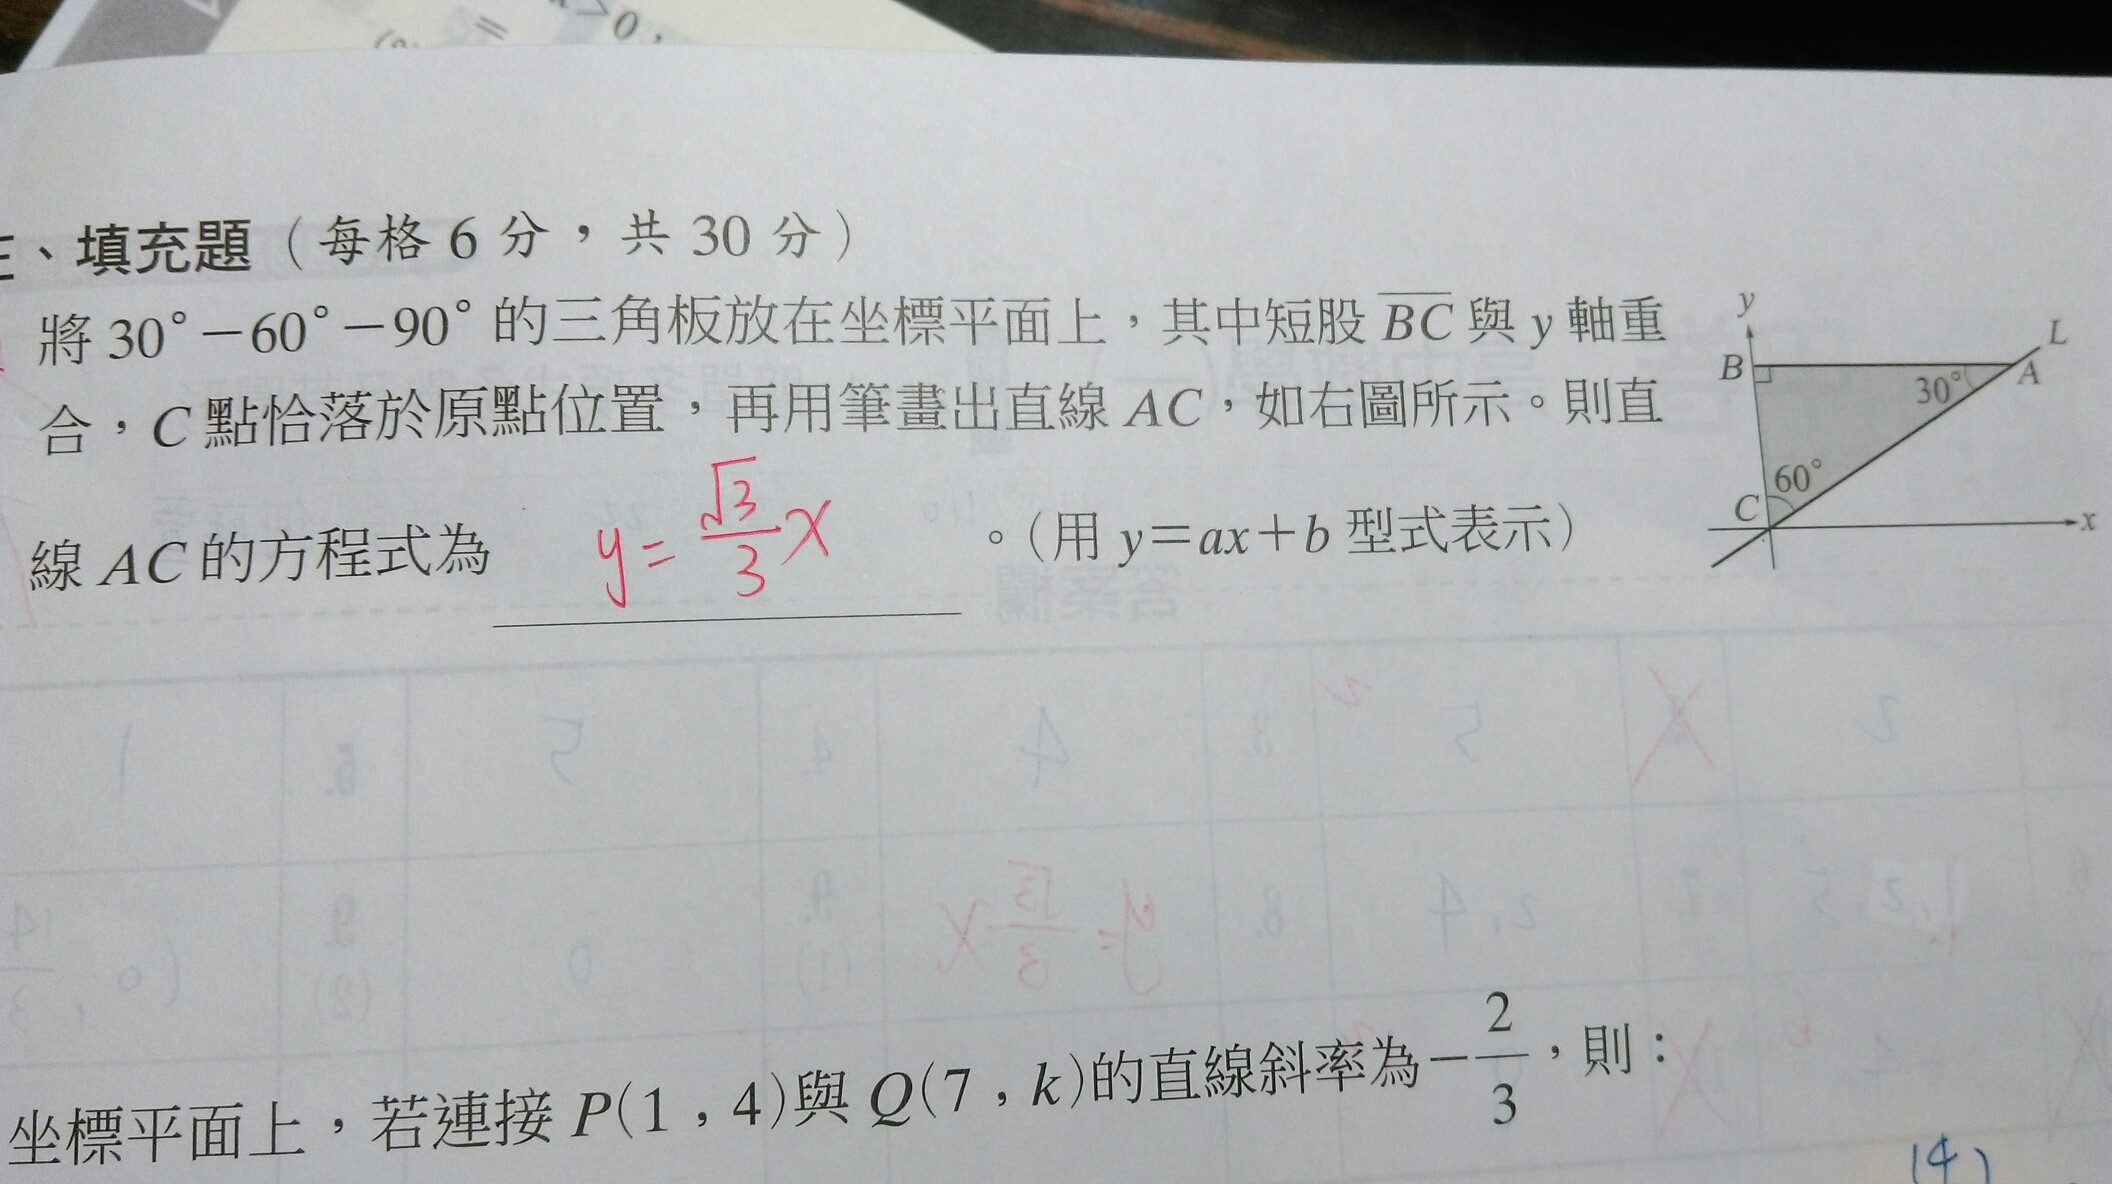 三、填充題（每格 6 分，共 30 分）
將 30°－60°－90° 的三角板放在坐標平面上，其中短股 BC 與 y 軸重
合，C 點恰落於原點位置，再用筆畫出直線 AC，如右圖所示。則直
線 AC 的方程式為 y=√3/3 x 。（用 y＝ax＋b 型式表示）
y
L
B
30°
A
60°
C
x
坐標平面上，若連接 P(1，4)與 Q(7，k)的直線斜率為－2/3，則：
(4)